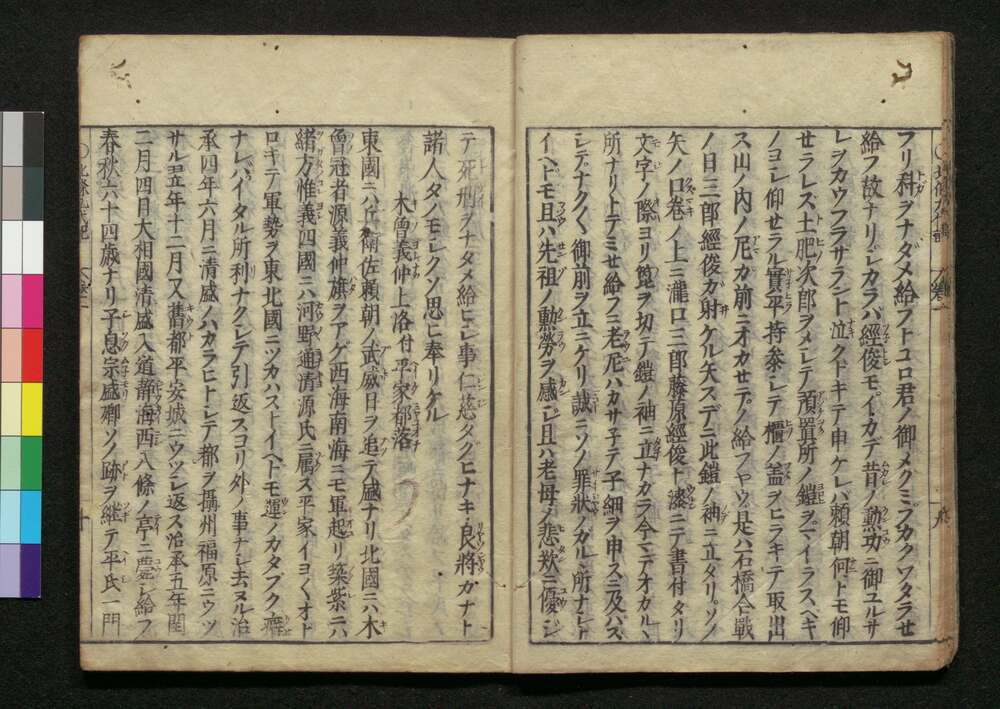 フリ科ヲナダメ給フトコロ君ノ御メクミフカクワタラせ
給フ故ナリシカラバ經俊モイカデ昔ノ勲功ニ御ユルサ
レヲカウフラサラント泣クドキテ申ケレバ頼朝何トモ仰
せラレス土肥次郎ヲメシテ預置所ノ鎧ヲマイラスヘキ
ノヨシ仰せラル實平持参シテ櫃ノ盖ヲヒラキテ取出
ス山ノ内ノ尼カ前ニオカせテノ給フヤウ是ハ石橋合戰
ノ日三郎經俊ガ射ケル矢スデニ此鎧ノ袖ニ立タリソノ
矢ノ口巻ノ上ニ瀧口三郎藤原經俊ト漆ニテ書付タリ
文字ノ際ヨリ箆ヲ切テ鎧ノ袖ニ立ナカラ今マデオカル
所ナリトテミせ給フニ老尼ハカサ子テ子細ヲ申スニ及バズ
シテナク〱御前ヲ立ニケリ誠ニソノ罪状ノガルヽ所ナシト
イヘドモ且ハ先祖ノ勲労ヲ感シ且ハ老母ノ悲歎ニ優シ
テ死刑ヲナタメ給ヒシ事仁慈タグヒナキ良將カナト
諸人タノモシクソ思ヒ奉リケル
木曽義仲上洛付平家都落
東國ニハ兵衛佐頼朝ノ武威日ヲ追テ盛ナリ北國ニハ木
曽冠者源義仲旗ヲアゲ西海南海ニモ軍起リ築紫ニハ
緒方惟義四國ニハ河野通清源氏ニ属ス平家イヨ〱オト
ロキテ軍勢ヲ東北國ニツカハストイヘドモ運ノカタフク癖
ナレバイタル所利ナクシテ引返スコリ外ノ事ナシ去ヌル治
承四年六月ニ清盛ノハカラヒトシテ都ヲ攝州福原ニウツ
サル翌年十二月又舊都平安城ニウツシ返ス治承五年閏
二月四日大相國清盛入道静海西八條ノ亭ニ慶シ給フ
春秋六十四歳ナリ子息宗盛卿ソノ跡ヲ継テ平氏一門